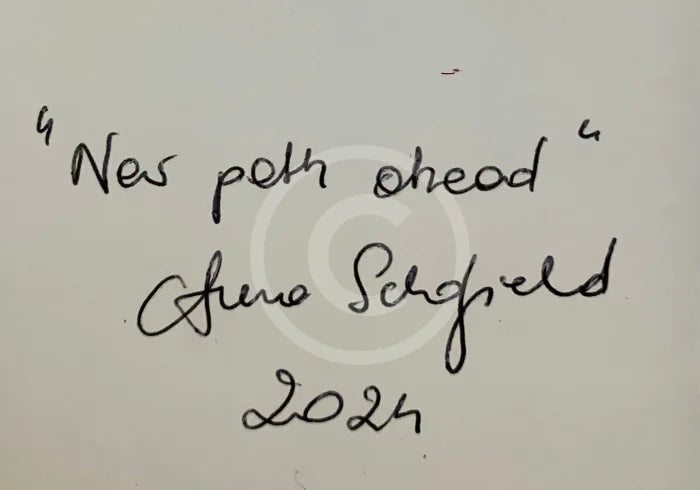 "New path ahead"
Anna Schofield
2024